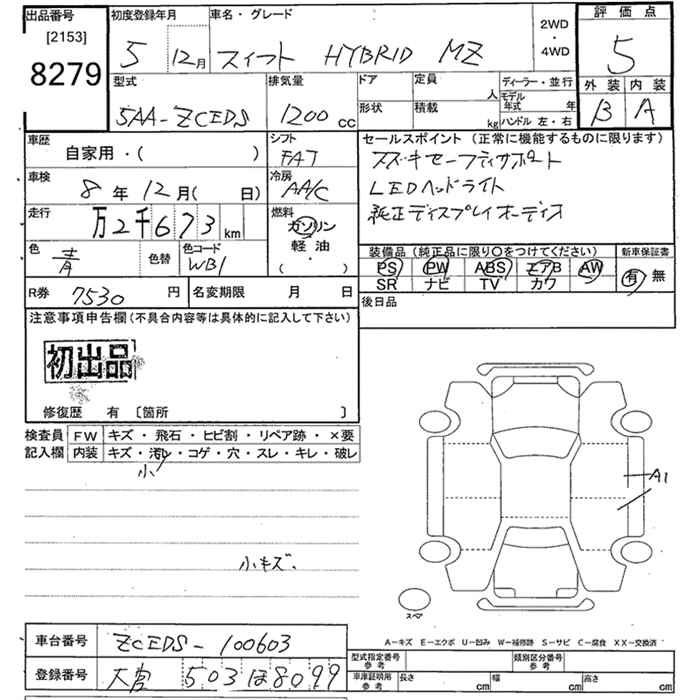 出品番号 初度登録年月 車名・グレード 2WD 評価点
[2153] 5 12月 スイフト HYBRID MZ ・ 5
8279 4WD
型式 排気量 ドア 定員 人 ディーラー・並行 外装 内装
5AA-ZCEDS 1200cc 形状 積載 kg モデル年式 年 B A
ハンドル 左・右
車歴 シフト セールスポイント (正常に機能するものに限ります)
自家用・( ) FAT スズキセーフティサポート
車検 冷房 LEDヘッドライト
8年12月( 日) AA/C 純正ディスプレイオーディオ
走行 燃料
万2千673km ガソリン
軽油
・
( )
色 青 色替 色コード WB1
装備品(純正品に限り○をつけてください) 新車保証書
PS PW ABS エアB AW 有・無
SR ナビ TV カワ
R券 7530円 名変期限 月 日 後日品
注意事項申告欄(不具合内容等は具体的に記入して下さい)
初出品
修復歴 有 〔箇所 〕
検査員 FW キズ・飛石・ヒビ割・リペア跡・×要
記入欄 内装 キズ・汚れ・コゲ・穴・スレ・キレ・破レ
小
A1
小キズ、
スペア
A-キズ E-エクボ U-凹み W-補修跡 S-サビ C-腐食 XX-交換済
車台番号 ZCEDS-100603
型式指定番号 参考 類別区分番号 参考
登録番号 大宮 503 ほ 8099
車庫証明用 参考 長さ cm 幅 cm 高さ cm